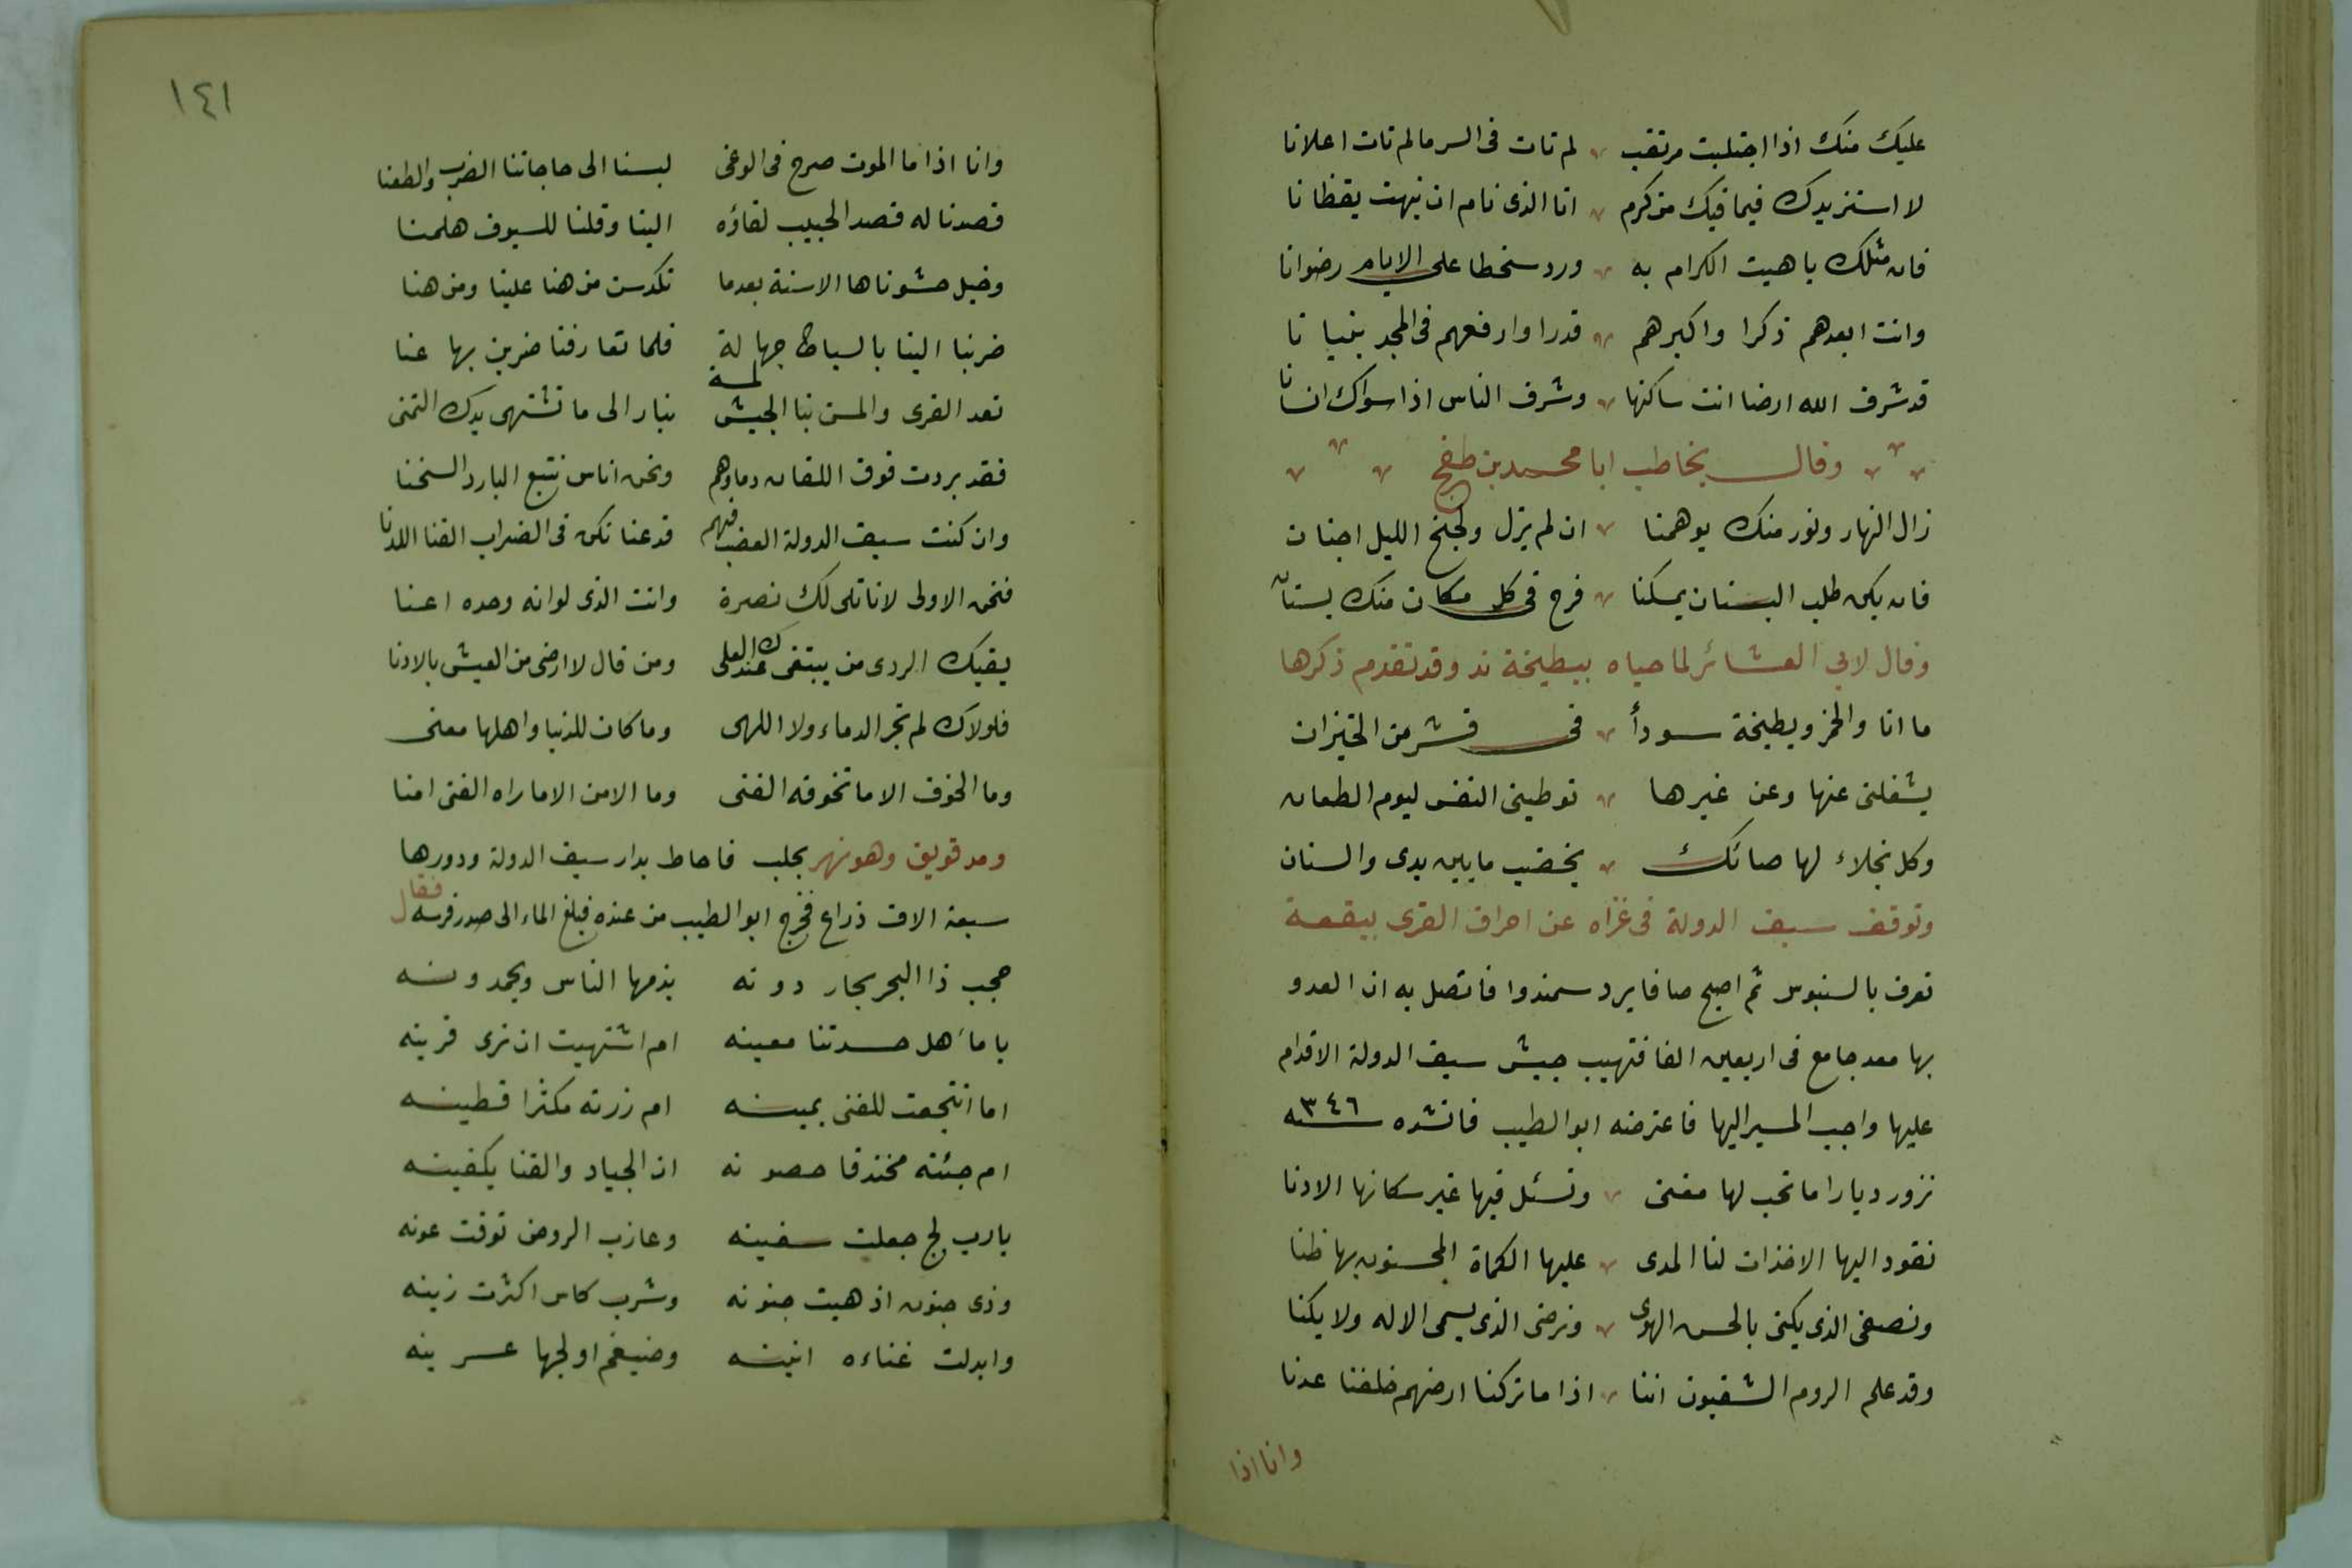 عليك منك اذا اختليت مرتقب لم تات فى السر مالم تات اعلانا
لا استزيدك فيما فيك من كرم انا الذى نام ان نبهت يقظانا
فان مثلك باهيت الكرام به ورد سخطا على الايام رضوانا
وانت ابعدهم ذكرا واكبرهم قدرا وارفعهم فى المجد بنيانا
قد شرف الله ارضا انت ساكنها وشرف الناس اذ اسواك انسانا
وقال يخاطب ابا محمد بن طغج
زال النهار ونور منك يوهمنا ان لم يزل ولجنح الليل اجنان
فان يكن طلب البستان يمسكنا فرح فى كل مكان منك بستان
وقال لابى العشائر لما حياه ببطيخة ند وقد تقدم ذكرها
ما انا والخمر وبطيخة سودأ فى قشر من الخيزران
يشغلنى عنها وعن غيرها توطينى النفس ليوم الطعان
وكل نجلاء لها صائك يخضب ما بين يدى والسنان
وتوقف سيف الدولة فى غزاه عن احراق القرى ببقعة
تعرف بالسنبوس ثم اصبح صافا يرد سمندوا فاتصل به ان العدو
بها معد جامع فى اربعين الفا فتهيب جيش سيف الدولة الاقدام
عليها واجب المسير اليها فاعترضه ابو الطيب فانشده سنه ٣٤٦
نزور ديارا ما تحب لها مغنى ونسئل فيها غير سكانها الادنا
نقود اليها الاخذات لنا المدى عليها الكماة المحسنون بها ظنا
ونصفى الذى يكنى بالحسن الهوى ونرضى الذى يسمى الاله ولا يكنا
وقد علم الروم الشقيون اننا اذا ما تركنا ارضهم خلفنا عدنا
وانا اذا
١٤١
وانا اذا ما الموت صرح فى الوغى لبسنا الى حاجاتنا الضرب والطعنا
قصدنا له قصد الحبيب لقاؤه الينا وقلنا للسيوف هلمنا
وخيل حشوناها الاسنة بعدما تكدسن من هنا علينا ومن هنا
ضربنا الينا بالسياط جهالة فلما تعارفنا ضربن بها عنا
تعد القرى والمس بنا الجيش لمسة نبار الى ما تشتهى يدك التمنى
فقد بردت فوق اللقان دماوهم ونحن اناس نتبع البارد السخنا
وان كنت سيف الدولة العضب فيهم فدعنا نكن فى الضراب القنا اللدنا
فنحن الاولى لا ناتلى لك نصرة وانت الذى لوانه وحده اغنا
يقيك الردى من يبتغى عندك العلى ومن قال لا ارضى من العيش بالادنا
فلولاك لم تجر الدماء ولا اللهى وما كان للدنيا واهلها معنى
وما الخوف الا ما تخوفه الفتى وما الامن الا ماراه الفتى امنا
ومد قويق وهو نهر بحلب فاحاط بدار سيف الدولة ودورها
سبعة الاف ذراع فخرج ابو الطيب من عنده فبلغ الماء الى صدر فرسه فقال
حجب ذا البحر بحار دونه يذمها الناس ويحمدونه
يا ماء هل حسدتنا معينه ام اشتهيت ان ترى قرينه
اما انتجعت للغنى يمينه ام زرته مكثرا قطينه
ام جئته مخندقا حصونه ان الجياد والقنا يكفينه
يا رب لج جعلت سفينه وعازب الروض توفت عونه
وذى جنون اذهبت جنونه وشرب كاس اكثرت زينه
وابدلت غناءه انينه وضيغم اولجها عرينه